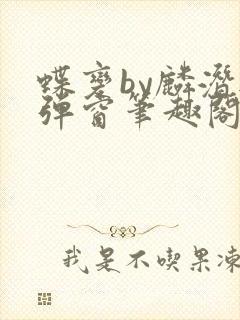 蝶变by麟潜
弹窗笔趣阁
我是不吃果冻